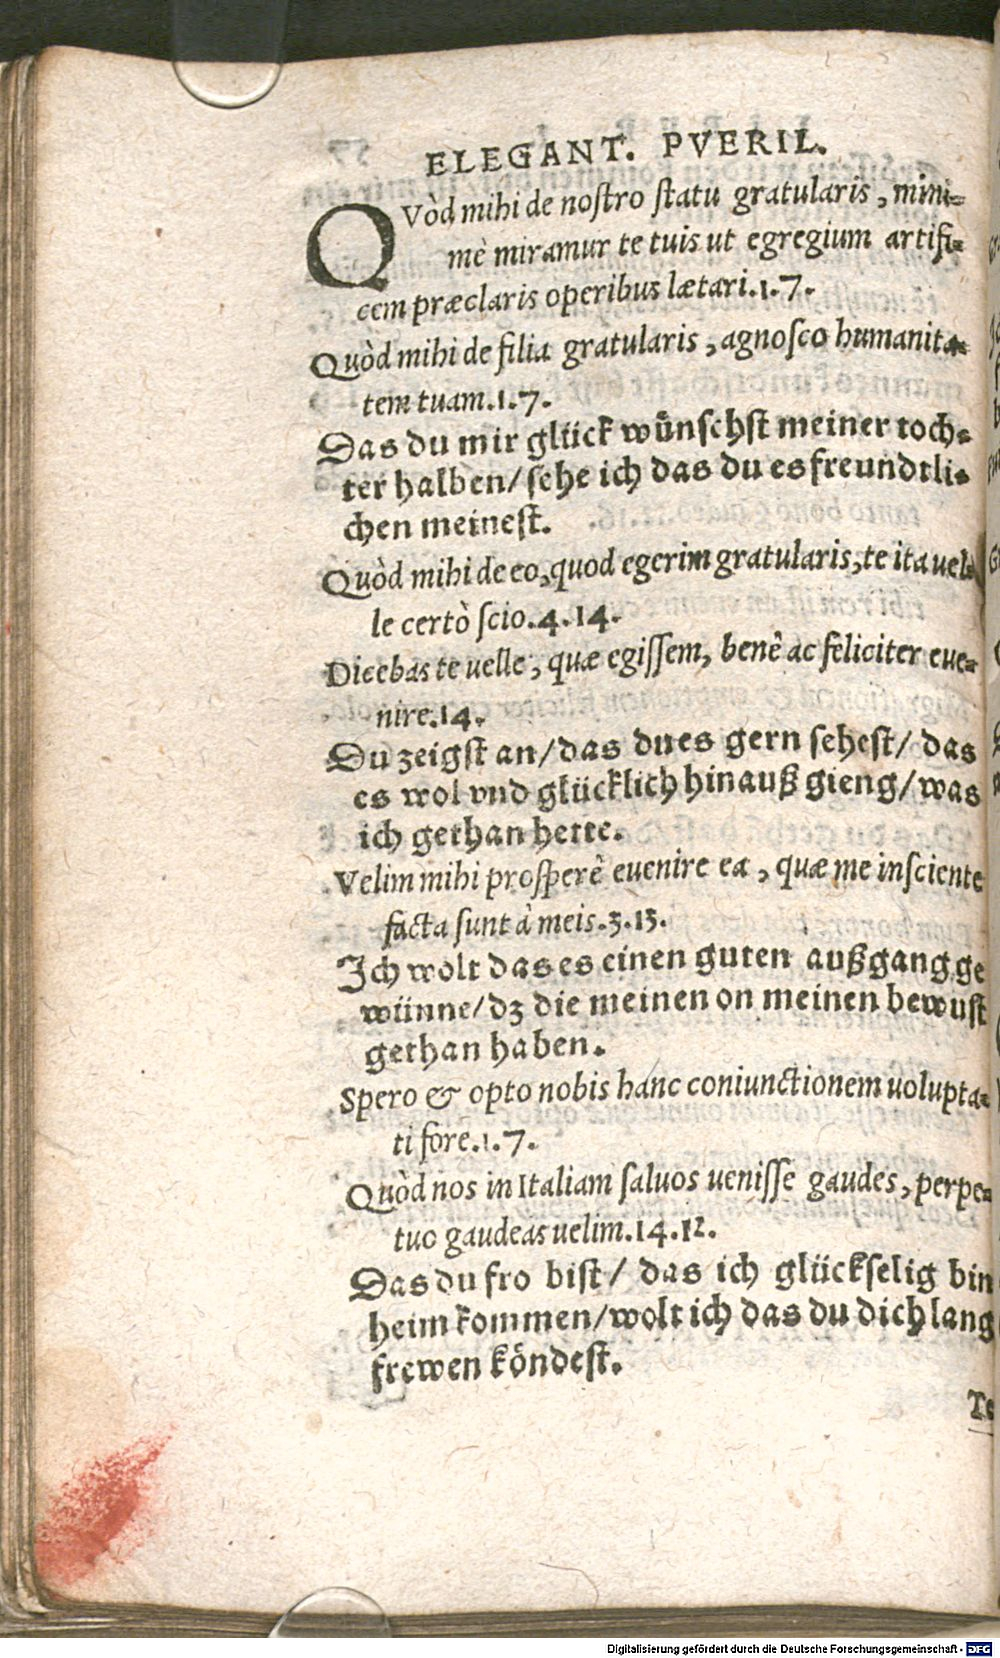 ELEGANT. PVERIL.
QVòd mihi de noſtro ſtatu gratularis, mini-
mè miramur te tuis ut egregium artifi-
cem præclaris operibus lætari.1.7.
Quòd mihi de filia gratularis, agnoſco humanita-
tem tuam.1.7.
Das du mir glück wünſchſt meiner toch-
ter halben/ſehe ich das du es freundtli-
chen meineſt.
Quòd mihi de eo, quod egerim gratularis, te ita uel-
le certò ſcio.4.14.
Dicebas te uelle, quæ egiſſem, benè ac feliciter eue-
nire.14.
Du zeigſt an/das du es gern ſeheſt/das
es wol vnd glücklich hinauß gieng/was
ich gethan hette.
Velim mihi proſperè euenire ea, quæ me inſciente
facta ſunt à meis.3.13.
Ich wolt das es einen guten außgang ge
wünne/dz die meinen on meinen bewuſt
gethan haben.
Spero & opto nobis hanc coniunctionem uolupta-
ti fore.1.7.
Quòd nos in Italiam ſaluos ueniſſe gaudes, perpe-
tuo gaudeas uelim.14.12.
Das du fro biſt/ das ich glückſelig bin
heim kommen/wolt ich das du dich lang
frewen köndeſt.
Te
Digitalisierung gefördert durch die Deutsche Forschungsgemeinschaft - DFG